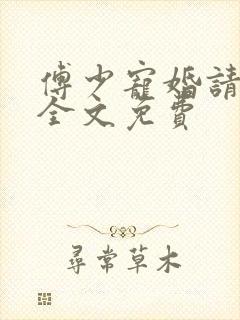 傅少寵婚請
全文免費
尋常草木